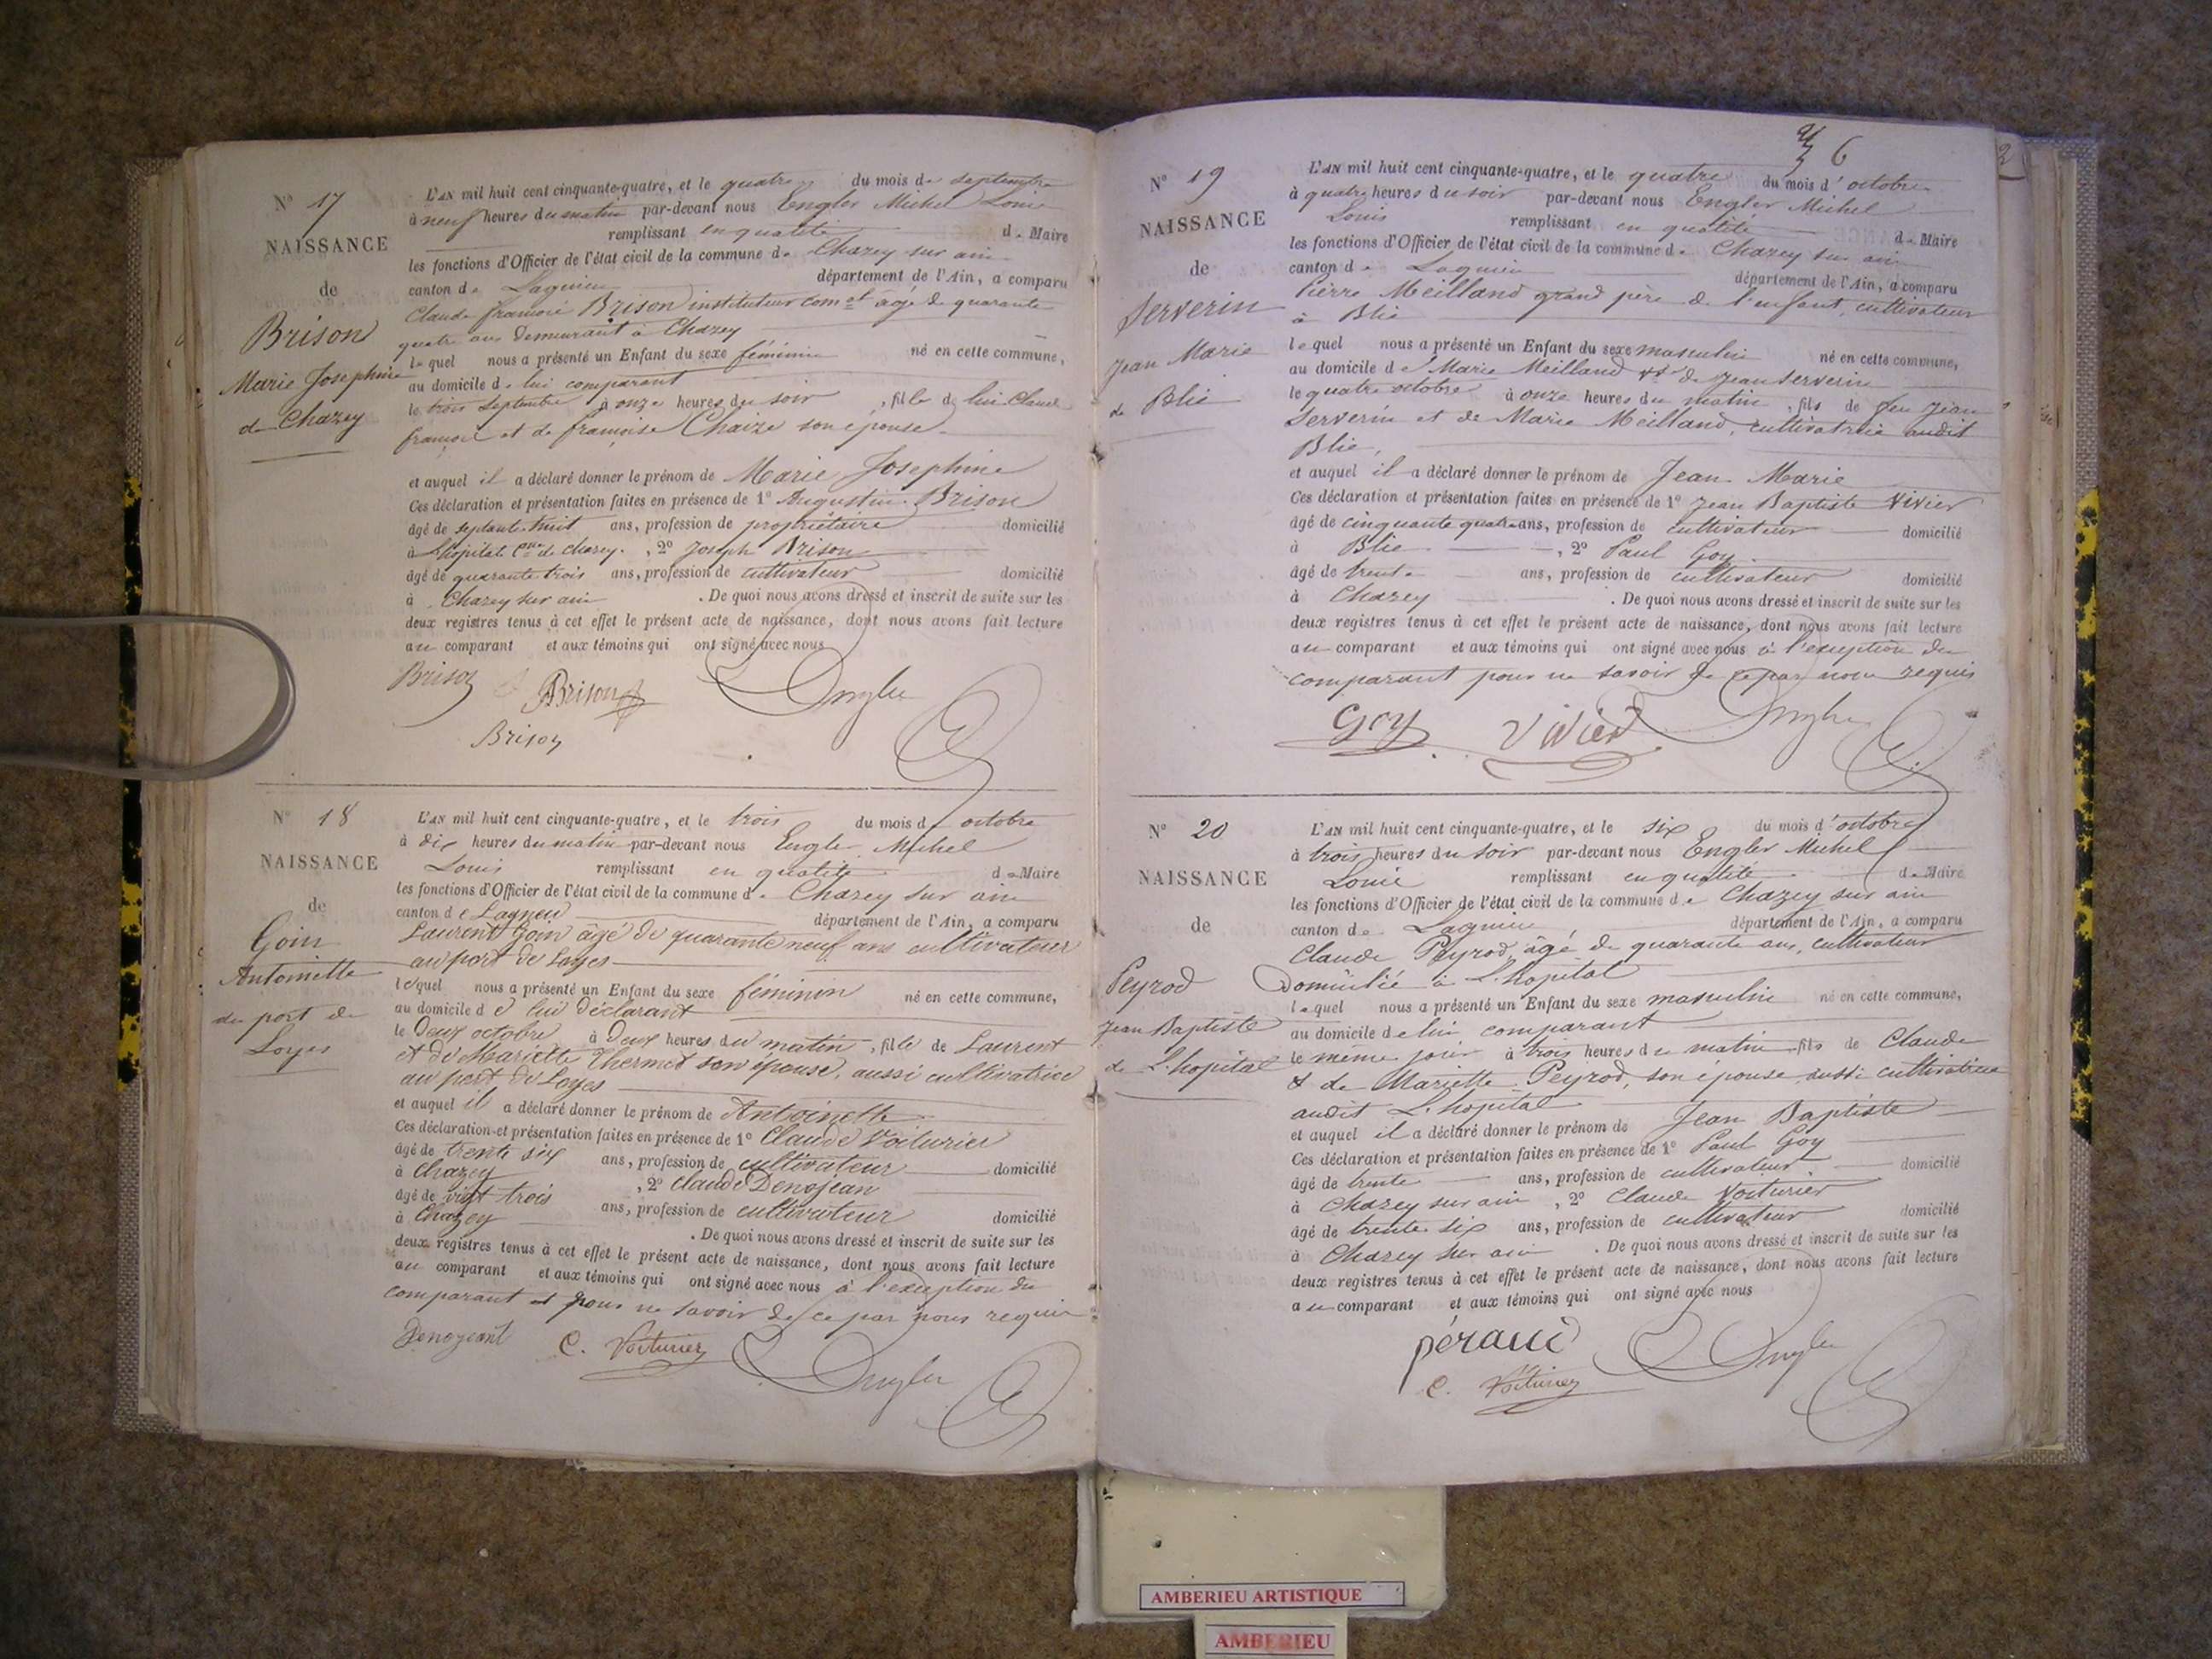 N° 17
NAISSANCE
de
Brison
Marie Josephine
de Chazey
L'AN mil huit cent cinquante-quatre, et le quatre du mois de septembre
à neuf heures du matin par-devant nous Engler Michel Louis
remplissant en qualité de Maire
les fonctions d'Officier de l'état civil de la commune de Chazey sur ain
canton de Lagnieu département de l'Ain, a comparu
Claude françois Brison instituteur com.al agé de quarante
quatre ans demeurant à Chazey
lequel nous a présenté un Enfant du sexe féminin né en cette commune,
au domicile de lui comparant
le trois septembre à onze heures du soir, fille de lui Claude
françois et de françoise Chaize son épouse.
et auquel il a déclaré donner le prénom de Marie Josephine
Ces déclaration et présentation faites en présence de 1° Augustin Brison
âgé de septante huit ans, profession de propriétaire domicilié
à L'hôpital Cne de chazey. , 2° Joseph Brison
âgé de quarante trois ans, profession de cultivateur domicilié
à Chazey sur ain . De quoi nous avons dressé et inscrit de suite sur les
deux registres tenus à cet effet le présent acte de naissance, dont nous avons fait lecture
au comparant et aux témoins qui ont signé avec nous
Brison Brison Engler
Brison
N° 18
NAISSANCE
de
Goin
Antoinette
du port de
Loyes
L'AN mil huit cent cinquante-quatre, et le trois du mois d octobre
à dix heures du matin par-devant nous Engler Michel
Louis remplissant en qualité de Maire
les fonctions d'Officier de l'état civil de la commune de Chazey sur ain
canton de Lagneu département de l'Ain, a comparu
Laurent Goin âgé de quarante neuf ans cultivateur
au port de Loyes
lequel nous a présenté un Enfant du sexe féminin né en cette commune,
au domicile de lui déclarant
le deux octobre à deux heures du matin, fille de Laurent
et de Mariette Thermet son épouse, aussi cultivatrice
au port de Loyes
et auquel il a déclaré donner le prénom de Antoinette
Ces déclaration et présentation faites en présence de 1° Claude Voiturier
âgé de trente six ans, profession de cultivateur domicilié
à Chazey , 2° Claude Denojean
âgé de vingt trois ans, profession de cultivateur domicilié
à Chazey . De quoi nous avons dressé et inscrit de suite sur les
deux registres tenus à cet effet le présent acte de naissance, dont nous avons fait lecture
au comparant et aux témoins qui ont signé avec nous à l'exception du
comparant et pour ne savoir de ce par nous requis
Denojeant C. Voiturier Engler
6
N° 19
NAISSANCE
de
Serverin
Jean Marie
de Blie
L'AN mil huit cent cinquante-quatre, et le quatre du mois d'octobre
à quatre heures du soir par-devant nous Engler Michel
Louis remplissant en qualité de Maire
les fonctions d'Officier de l'état civil de la commune de Chazey sur ain
canton de Lagnieu département de l'Ain, a comparu
Pierre Meilland grand père de l'enfant, cultivateur
à Blie
lequel nous a présenté un Enfant du sexe masculin né en cette commune,
au domicile de Marie Meilland vve de Jean Serverin
le quatre octobre à onze heures du matin, fils de feu Jean
Serverin et de Marie Meilland, cultivatrice audit
Blie,
et auquel il a déclaré donner le prénom de Jean Marie
Ces déclaration et présentation faites en présence de 1° Jean Baptiste Vivier
âgé de cinquante quatre ans, profession de cultivateur domicilié
à Blie , 2° Paul Goy
âgé de trente ans, profession de cultivateur domicilié
à Chazey . De quoi nous avons dressé et inscrit de suite sur les
deux registres tenus à cet effet le présent acte de naissance, dont nous avons fait lecture
au comparant et aux témoins qui ont signé avec nous à l'exception du
comparant pour ne savoir de ce par nous requis
Goy Vivier Engler
N° 20
NAISSANCE
de
Peyrod
Jean Baptiste
de L'hopital
L'AN mil huit cent cinquante-quatre, et le six du mois d'octobre
à trois heures du soir par-devant nous Engler Michel
Louis remplissant en qualité de Maire
les fonctions d'Officier de l'état civil de la commune de Chazey sur ain
canton de Lagnieu département de l'Ain, a comparu
Claude Peyrod, âgé de quarante ans, cultivateur
Domicilié à L'hopital
lequel nous a présenté un Enfant du sexe masculin né en cette commune,
au domicile de lui comparant
le même jour à trois heures du matin fils de Claude
& de Mariette Peyrod, son épouse aussi cultivatrice
audit L'hopital
et auquel il a déclaré donner le prénom de Jean Baptiste
Ces déclaration et présentation faites en présence de 1° Paul Goy
âgé de trente ans, profession de cultivateur domicilié
à Chazey sur ain , 2° Claude Voiturier
âgé de trente six ans, profession de cultivateur domicilié
à Chazey sur ain . De quoi nous avons dressé et inscrit de suite sur les
deux registres tenus à cet effet le présent acte de naissance, dont nous avons fait lecture
au comparant et aux témoins qui ont signé avec nous
péraud Engler
C. Voiturier
AMBERIEU ARTISTIQUE
AMBERIEU